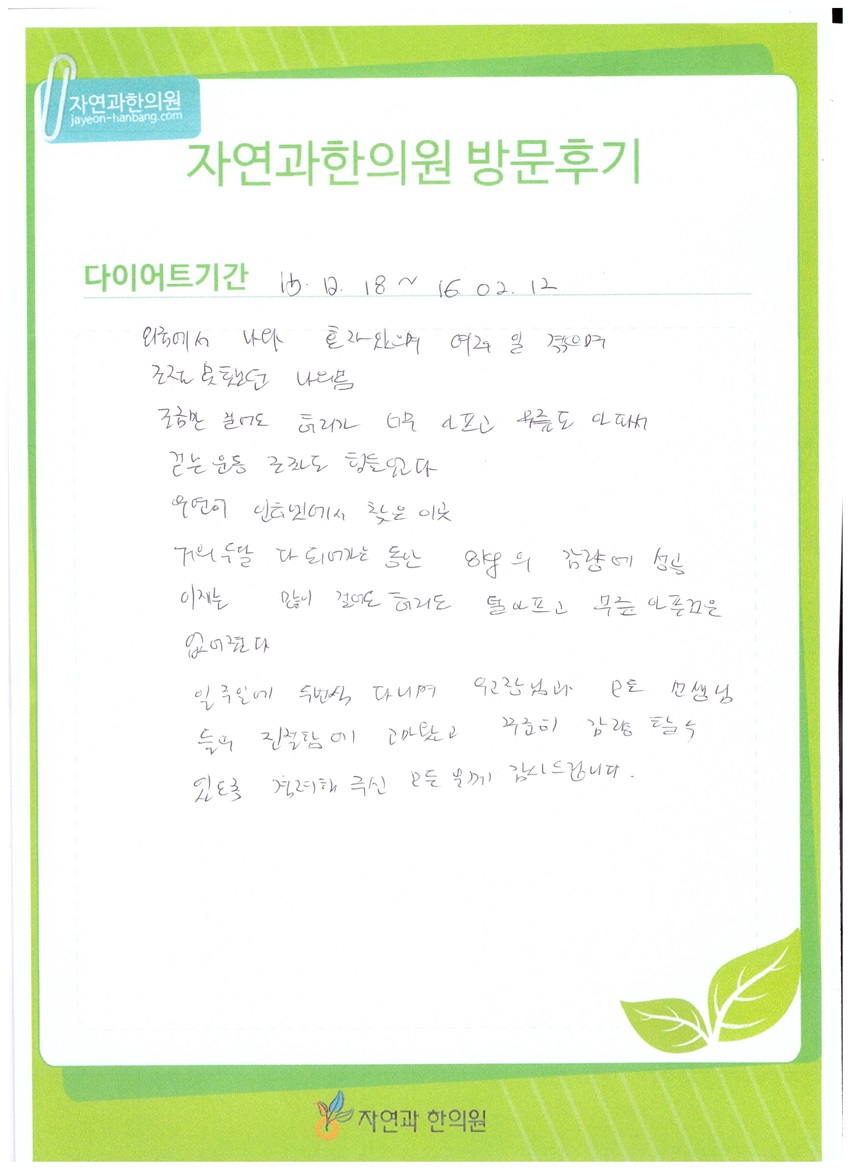 자연과한의원
jayeon-hanbang.com
자연과한의원 방문후기
다이어트기간 15. 12. 18 ~ 16 02. 12
외국에서 나와 일 겪으며
조절 못했던 나의몸
조금만 걸어도 허리가 너무 아프고 무릎도 아파서
걷는 운동 조차도 힘들었다
우연히 인터넷에서 찾은 이곳
거의 두달 다 되어가는 동안 8kg 의 감량에 성공
이제는 많이 걸어도 허리도 덜아프고 무릎 아픔은
없어졌다
일주일에 두번씩 다니며 모든 선생님
들의 친절함에 고마웠고 꾸준히 감량 할수
있도록 격려해 주신 모든 분께 감사드립니다.
자연과 한의원